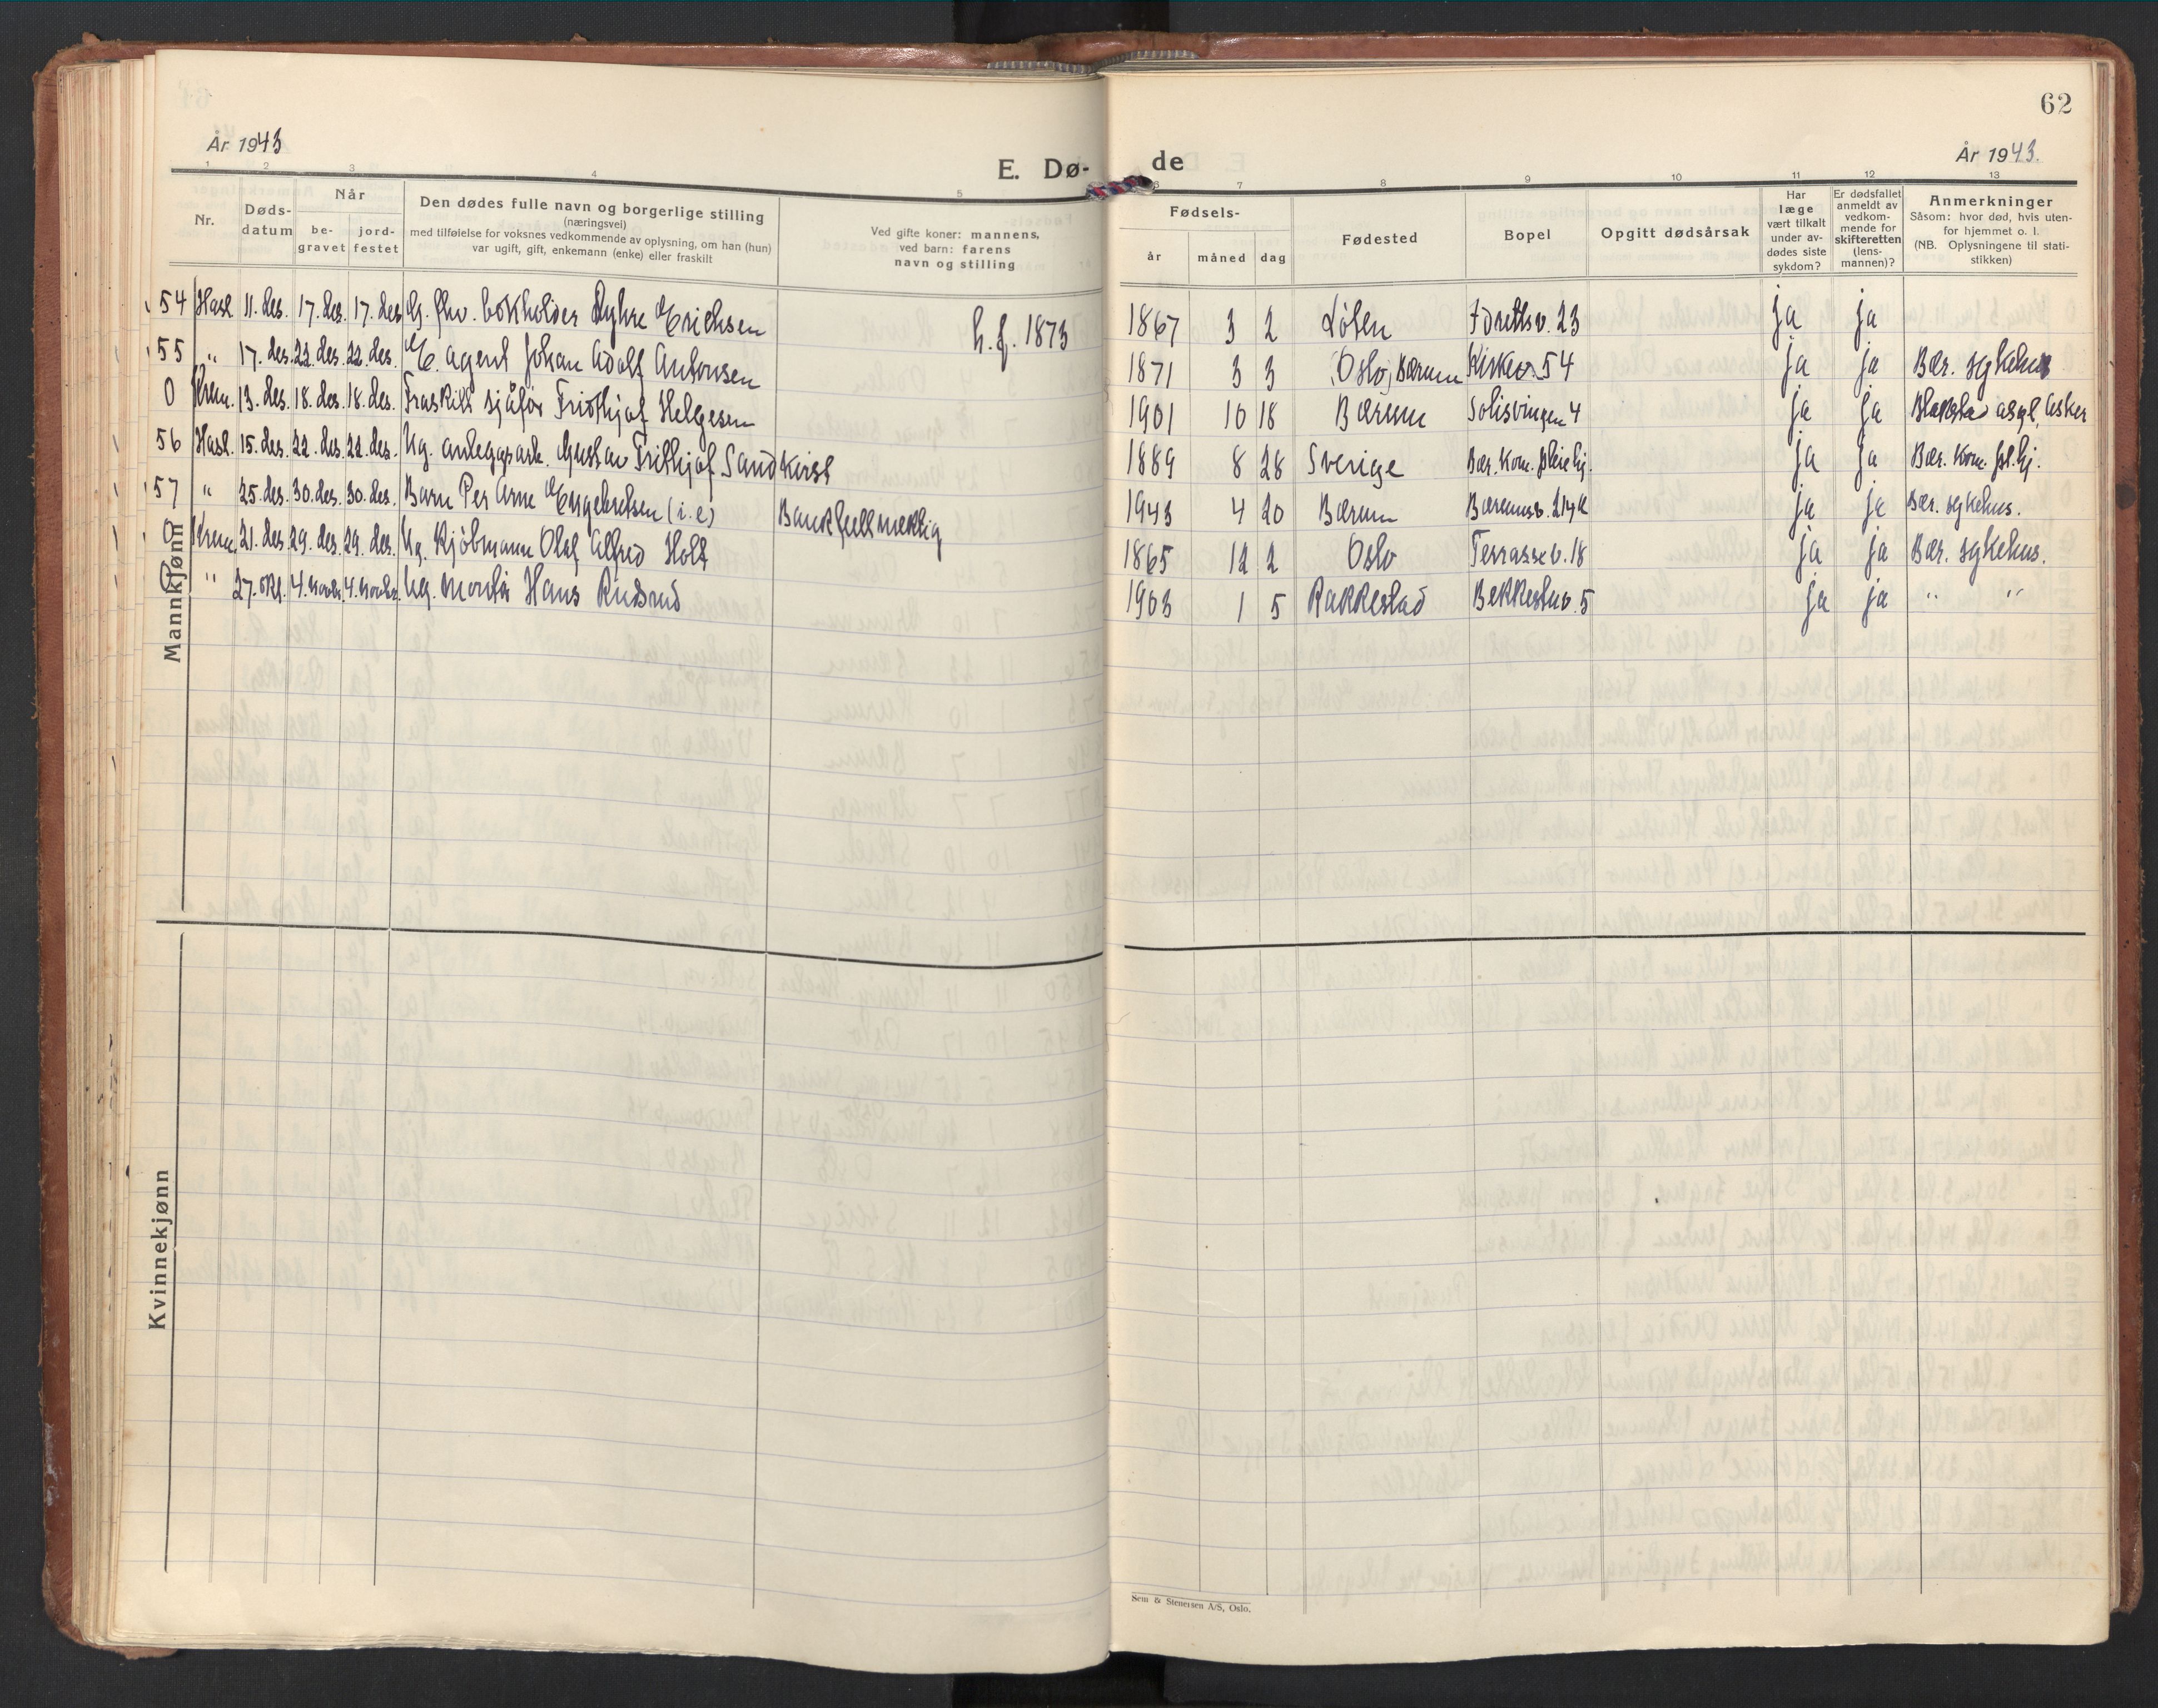 62
År 1943
År 1943.
E. Dø- de
1 2 3 4 5 6 7 8 9 10 11 12 13
Nr.
Døds-
datum
Når
be-
gravet
jord-
festet
Den dødes fulle navn og borgerlige stilling
(næringsvei)
med tilføielse for voksnes vedkommende av oplysning, om han (hun)
var ugift, gift, enkemann (enke) eller fraskilt
Ved gifte koner: mannens,
ved barn: farens
navn og stilling
Fødsels-
år måned dag
Fødested
Bopel
Opgitt dødsårsak
Har
læge
vært tilkalt
under av-
dødes siste
sykdom?
Er dødsfallet
anmeldt av
vedkom-
mende for
skifteretten
(lens-
mannen)?
Anmerkninger
Såsom: hvor død, hvis uten-
for hjemmet o. l.
(NB. Oplysningene til stati-
stikken)
Mannkjønn
54 Hasl 11. des. 17. des. 17. des. G. fhv. bokholder Dyhre Erichsen h. f. 1873 1867 3 2 Løten Idrettsv. 23 ja ja
55 " 17. des. 22. des. 22. des. E. agent Johan Adolf Antonsen 1871 3 3 Oslo, Bærum Kirkev. 54 ja ja Bær. sykehus
0 Krem. 13. des. 18. des. 18. des. Fraskilt sjåfør Fridthjof Helgesen 1901 10 18 Bærum Solisvingen 4 ja ja Blakstad asyl, Asker
56 Hasl. 15. des. 22. des. 22. des. Ug. anleggsarb. Gustav Frithjof Sandkvist 1889 8 28 Sverige Bær. Kom. pleiehj. ja ja Bær. Kom. pl.hj.
57 " 25. des. 30. des. 30. des. Barn Per Arne Engebretsen (i.e) Bankfullmektig 1943 4 20 Bærum Bærumsv. ja ja Bær. sykehus.
0 Krem. 21. des. 29. des. 29. des. Ug. Kjøbmann Olaf Alfred Holt 1865 12 2 Oslo Terrassev. 18 ja ja Bær. sykehus.
0 " 27. okt. 4. novbr. 4. novbr. Ug. Montør Hans Rudsrud 1903 1 5 Rakkestad Bekkestuv. 5 ja ja " "
Kvinnekjønn
Sem & Stenersen A/S, Oslo.